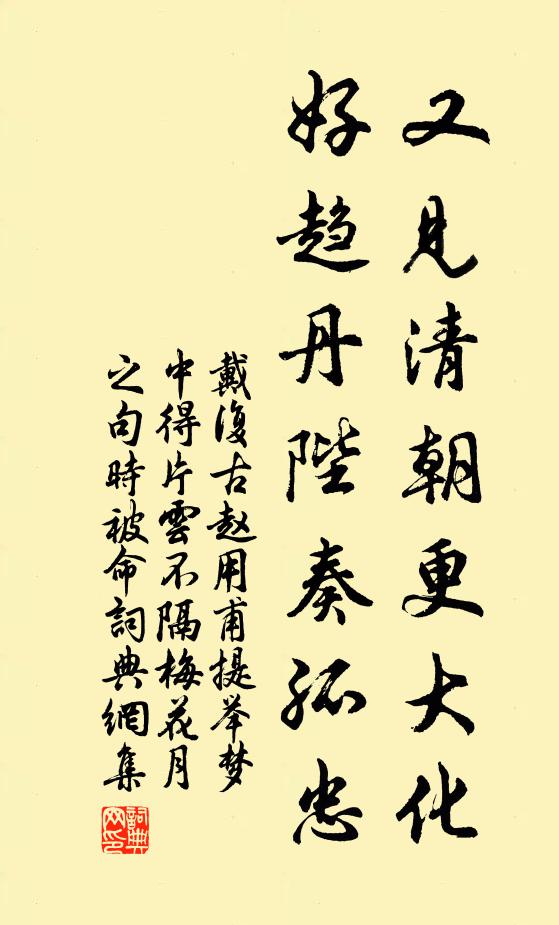 又見清朝更大化
好趋丹陛奏孤忠
戴復古赵用甫提举梦
中得片雲不隔梅花月
之句時被命詞典網集
詞典网印